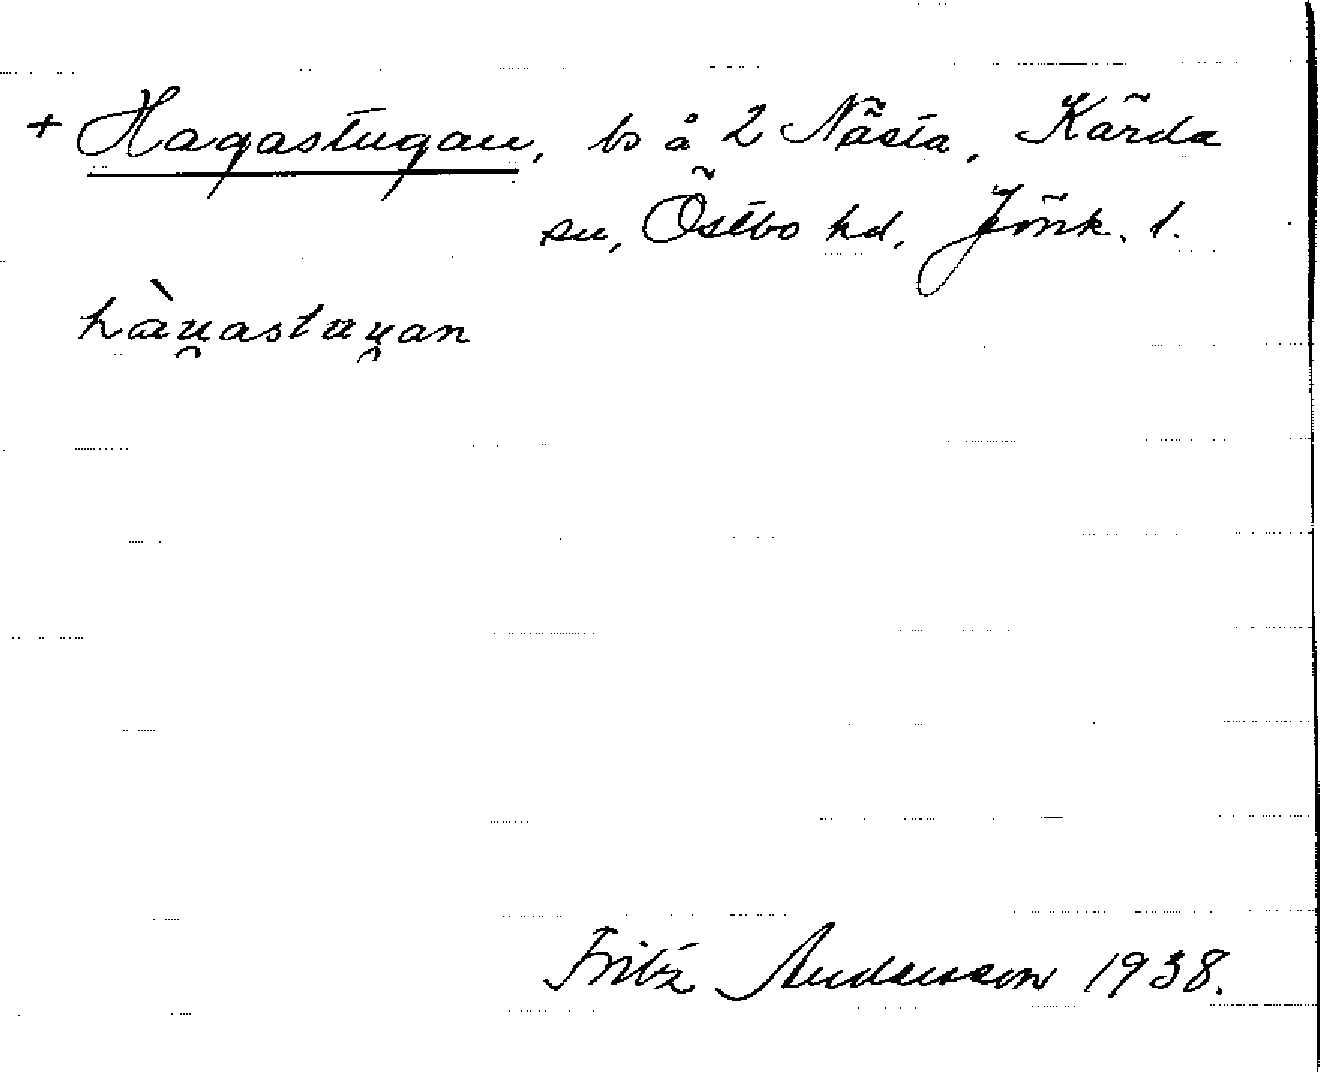 + Hagastugan, bs å 2 Nästa, Kärda
sn, Östbo hd, Jönk. l.
Fritz Andersson 1938.